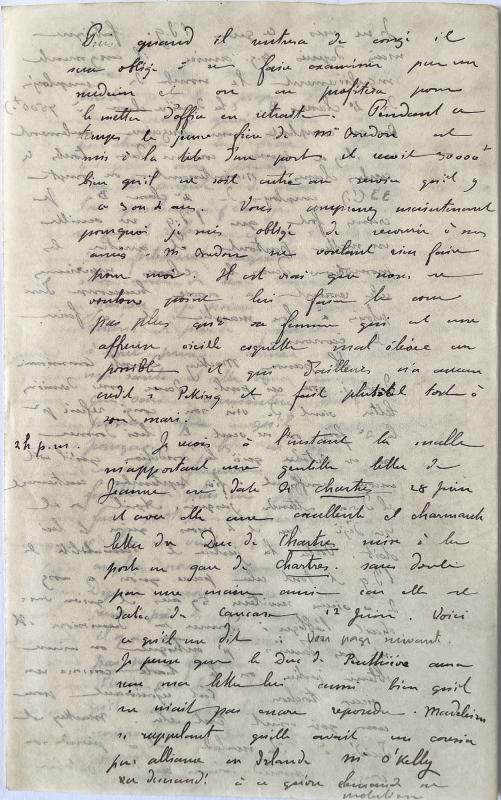 Puis quand il rentrera de congé il
sera obligé de se faire examiner par un
médecin et on en profitera pour
le mettre d'office en retraite. Pendant ce
temps le jeune frère de Mr Bredon est
mis à la tête d'un port et reçoit 30000 f
bien qu'il ne soit entré au service qu'il y
a 3 ou 4 ans. Vous comprenez maintenant
pourquoi je suis obligé de recourir à mes
amis. Mr Bredon ne voulant rien faire
pour moi. Il est vrai que nous ne
voulons point lui faire la cour
pas plus qu'à sa femme qui est une
affreuse vieille coquette mal élevée au
possible et qui d'ailleurs n'a aucun
crédit à Peking et fait plutôt tort à
son mari.
2 h p.m. Je reçois à l'instant la malle
m'apportant une gentille lettre de
Jeanne en date de Chartres 28 Juin
et avec elle une excellente et charmante
lettre du Duc de Chartres mise à la
poste en gare de Chartres. sans doute
par une main amie car elle est
datée du Caucase 12 Juin. Voici
ce qu'il me dit : Voir page suivante.
Je pense que le Duc de Penthièvre aura
reçu ma lettre lui aussi bien qu'il
ne m'ait pas encore répondu. Madeleine
se rappelant qu'elle avait un cousin
par alliance en Irlande Mr O'Kelly
a demandé à ce qu'on demande